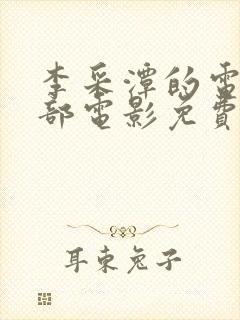 李采潭的電
部電影免費
耳東兔子